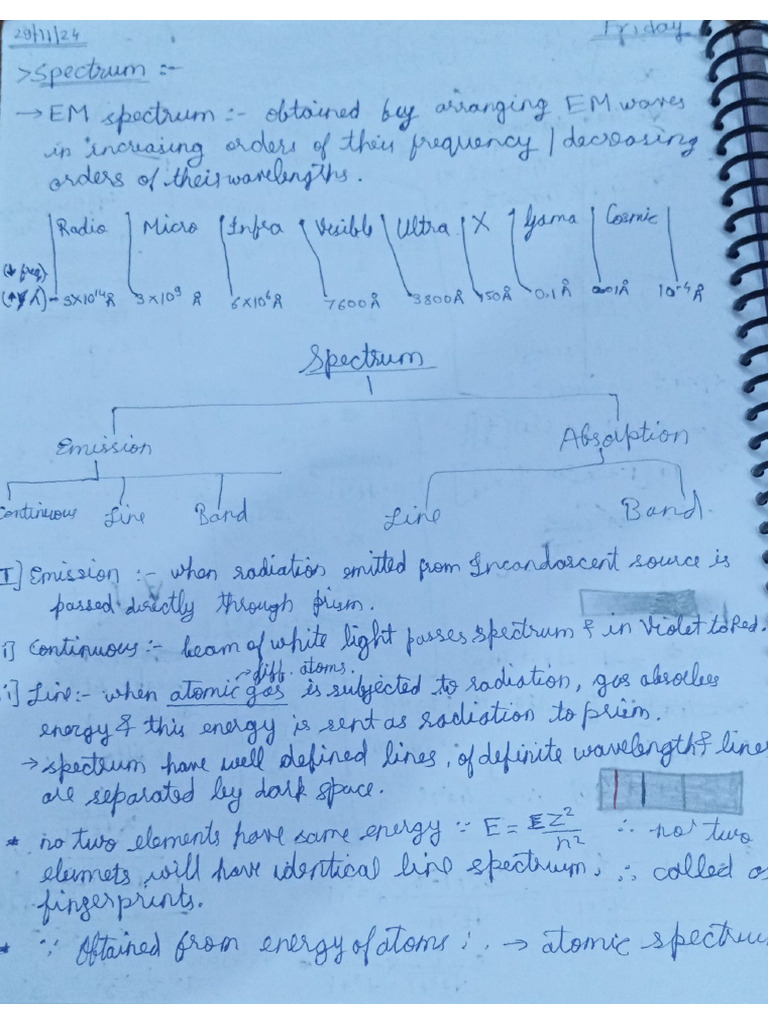 29/11/24 Friday
> Spectrum :-
→ EM spectrum :- obtained by arranging EM waves
in increasing orders of their frequency / decreasing
orders of their wavelengths.
Radio Micro Infra Visible Ultra X Gama Cosmic
(↓ freq)
(↑ λ) - 3×10¹⁴Å 3×10⁹ Å 6×10⁶Å 7600Å 3800Å 150Å 0.1Å 0.01Å 10⁻⁴Å
Spectrum
Emission Absorption
Continuous Line Band Line Band
I] Emission :- when radiation emitted from Incandascent source is
passed directly through prism.
i] Continuous :- beam of white light passes spectrum & in Violet to Red.
→ diff. atoms.
i] Line :- when atomic gas is subjected to radiation, gas absorbes
energy & this energy is sent as radiation to prism.
→ spectrum have well defined lines, of definite wavelength & lines
are separated by dark space.
* no two elements have same energy ∵ E = EZ²/n² ∴ no two
elemets will have identical line spectrum, ∴ called as
fingerprints.
* ∵ Obtained from energy of atoms ∴ → atomic spectrum